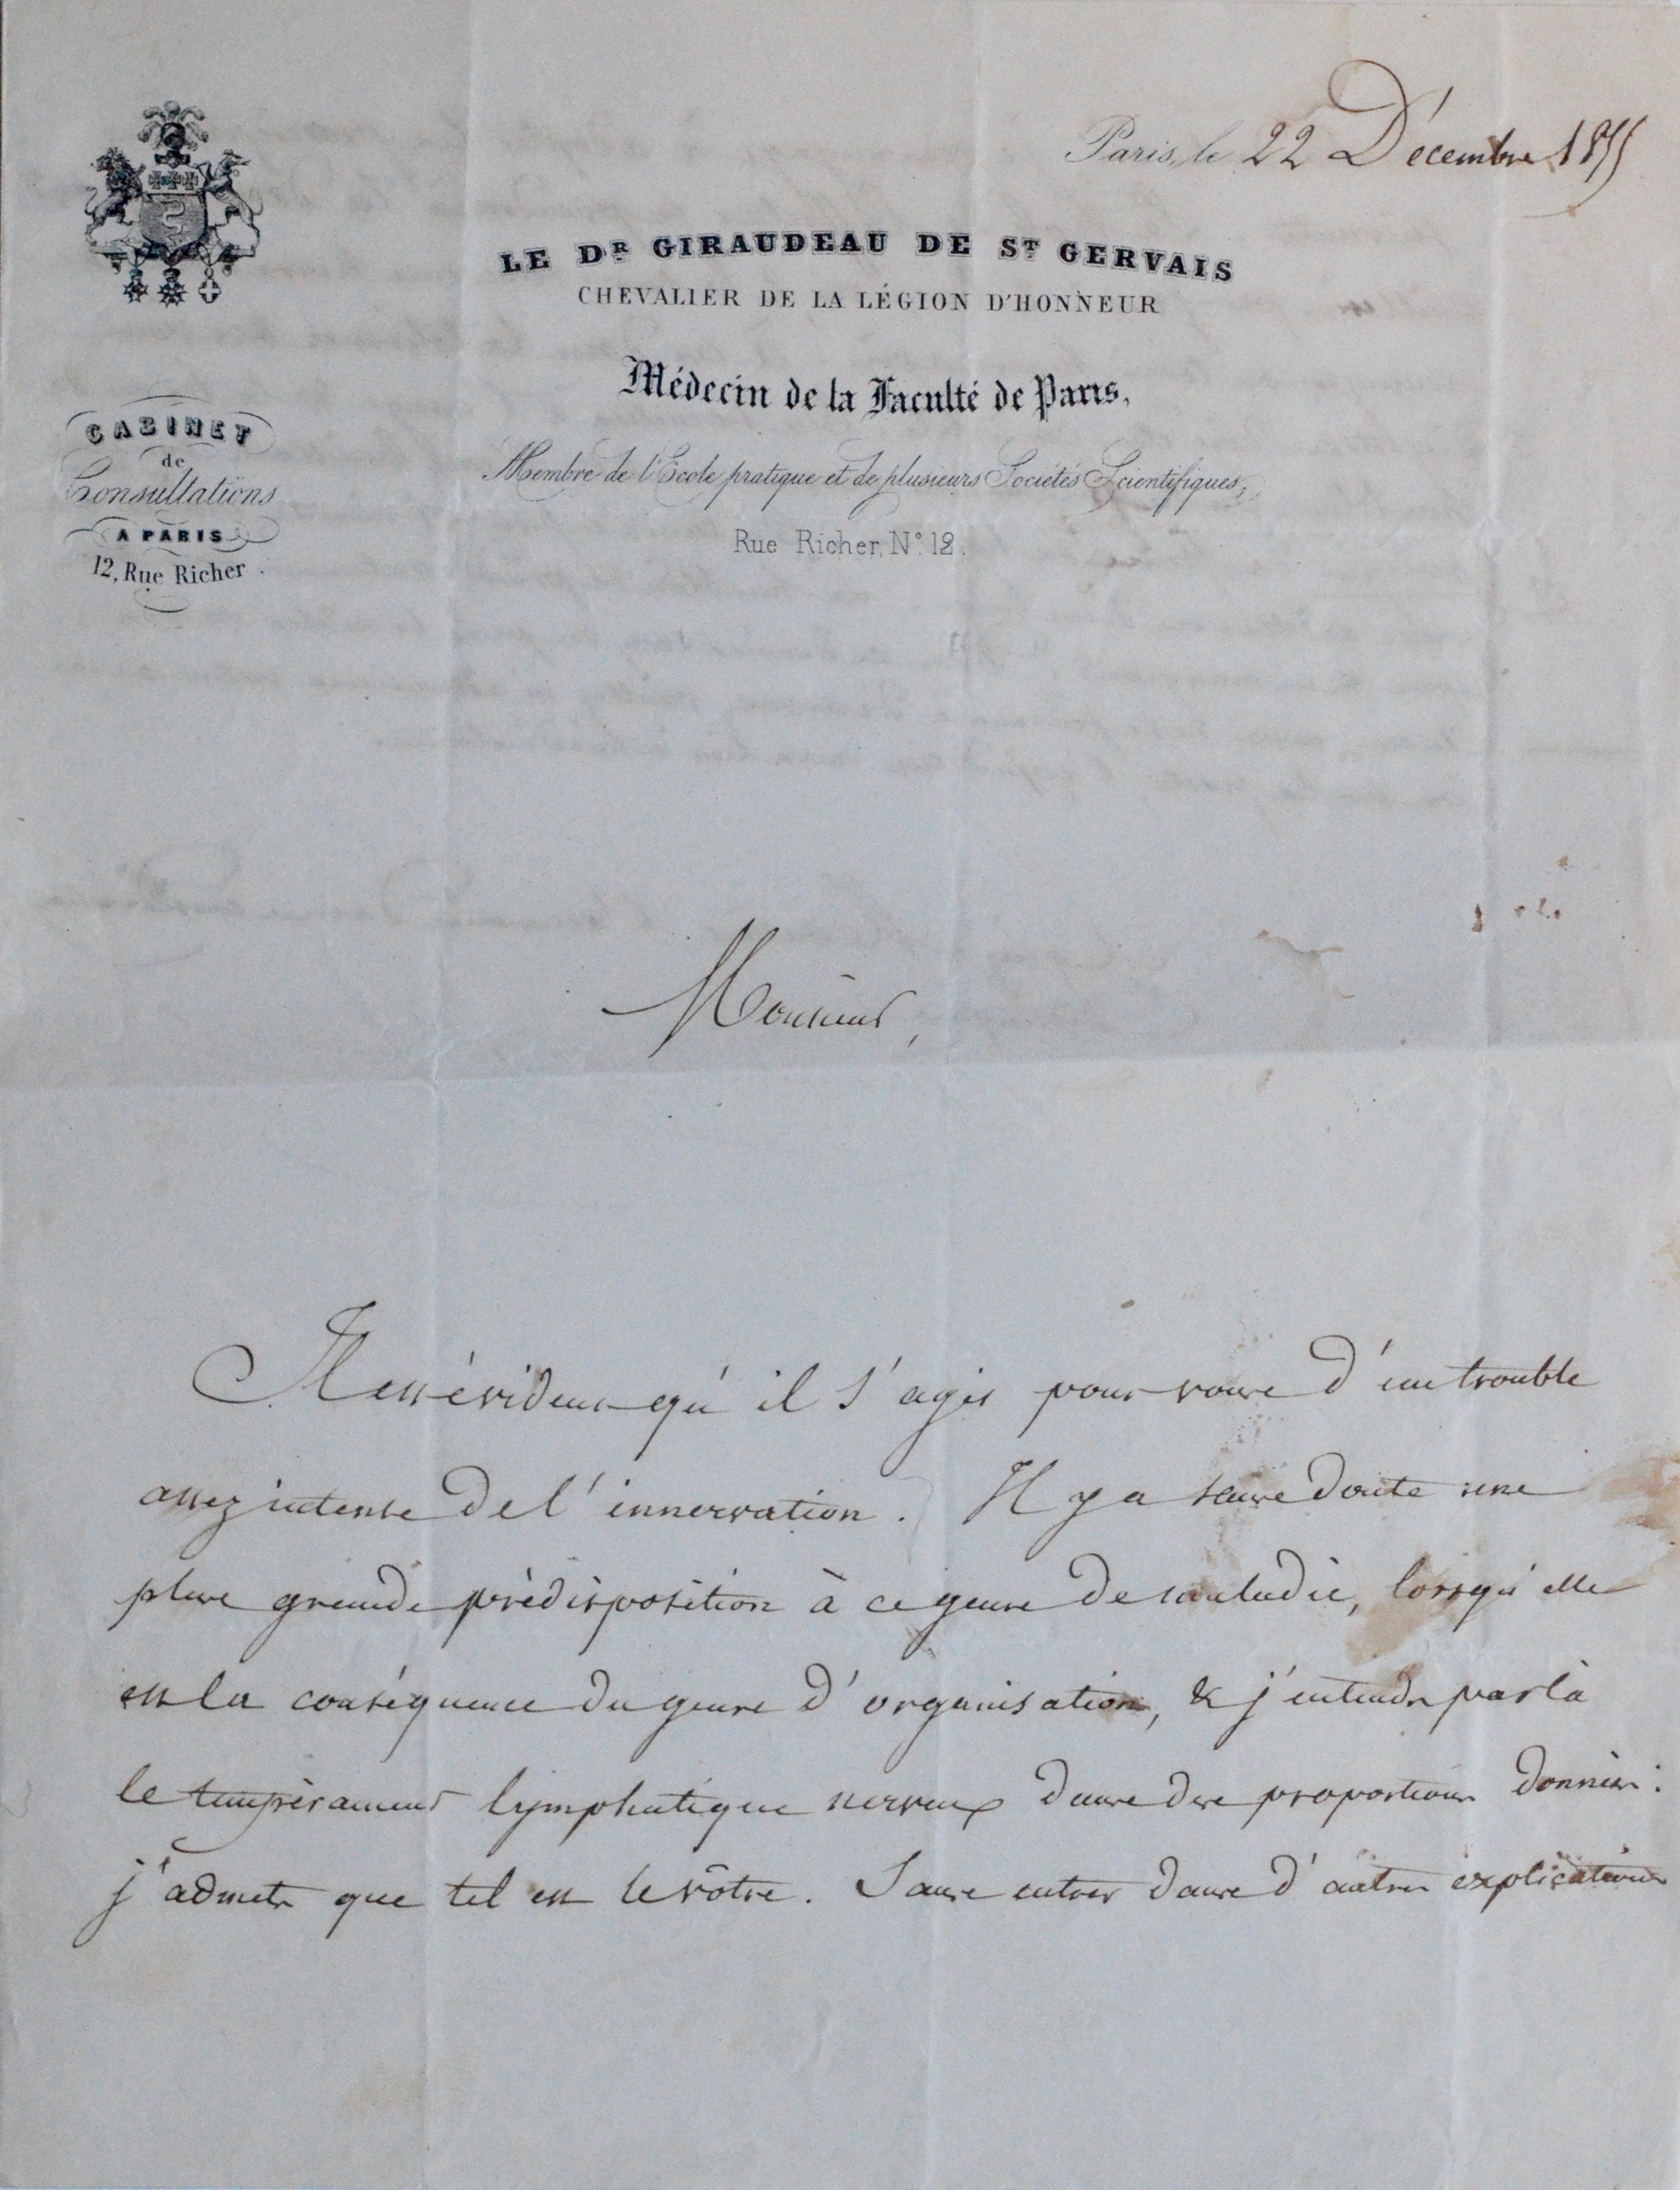 Paris, le 22 Décembre 1855
LE DR GIRAUDEAU DE ST GERVAIS
CHEVALIER DE LA LÉGION D'HONNEUR
Médecin de la Faculté de Paris,
Membre de l'Ecole pratique et de plusieurs Sociétés Scientifiques,
Rue Richer, N° 12.
CABINET
de
Consultations
A PARIS
12, Rue Richer.
Monsieur,
Il est évident qu'il s'agit pour vous d'un trouble
assez intense de l'innervation. Il y a sans doute une
plus grande prédisposition à ce genre de maladie, lorsqu'elle
est la conséquence du genre d'organisation, & j'entends par là
le tempérament lymphatique nerveux dans des proportions données:
j'admets que tel est le vôtre. Sans entrer dans d'autres explications